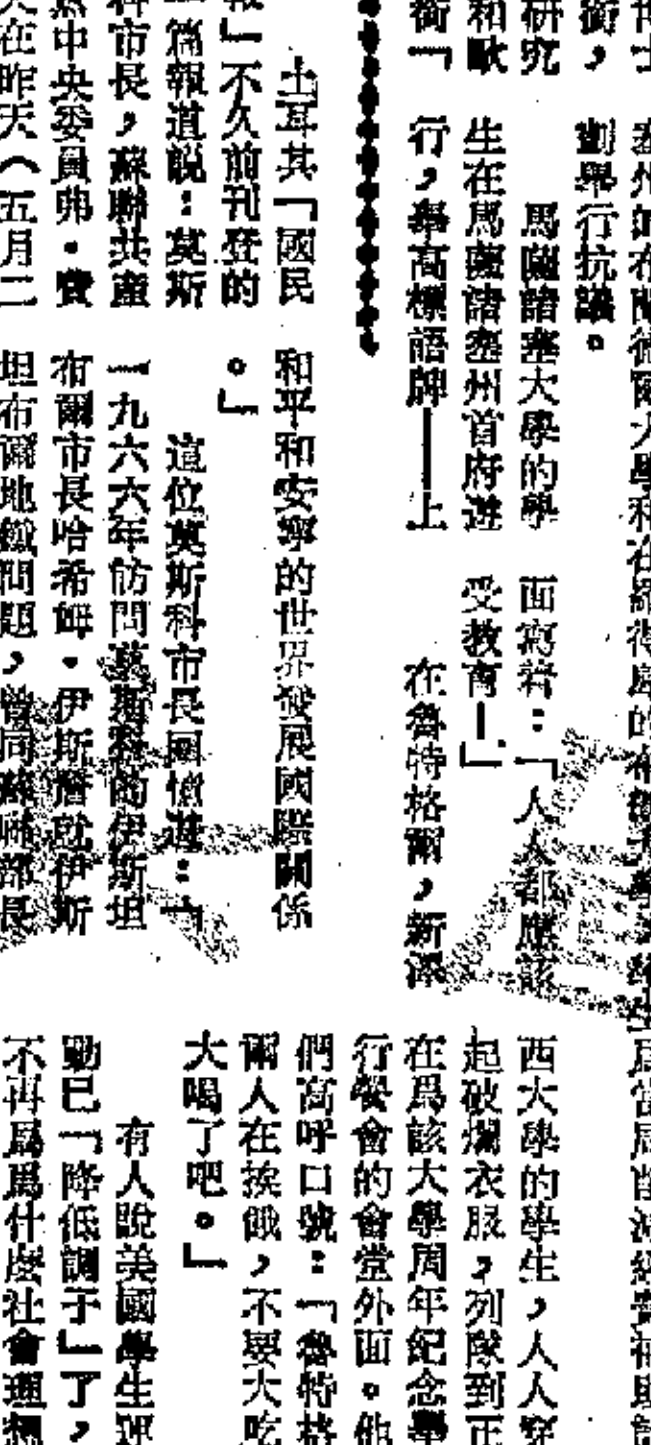 衡，
研究
和歐
衡「
劃舉行抗議。
馬薩諸塞大學的學
生在馬薩諸塞州首府遊
行，舉高標語牌——上
面寫着：「人人都應該
受教育！」
在魯特格爾，新澤
西大學的學生，人人穿
起破爛衣服，列隊到正
在爲該大學周年紀念舉
行餐會的會堂外面。他
們高呼口號：「魯特格
爾人在挨餓，不要大吃
大喝了吧。」
有人說美國學生運
動已「降低調子」了，
不再爲爲什麽社會理想
土耳其「國民
報」不久前刊登的
一篇報道說：莫斯
科市長，蘇聯共產
黨中央委員弗·費
在昨天（五月二
和平和安寧的世界發展國際關係
。」
這位莫斯科市長回憶道：「
一九六六年訪問莫斯科的伊斯坦
布爾市長哈希姆·伊斯詹就伊斯
坦布爾地鐵問題，曾同蘇聯部長